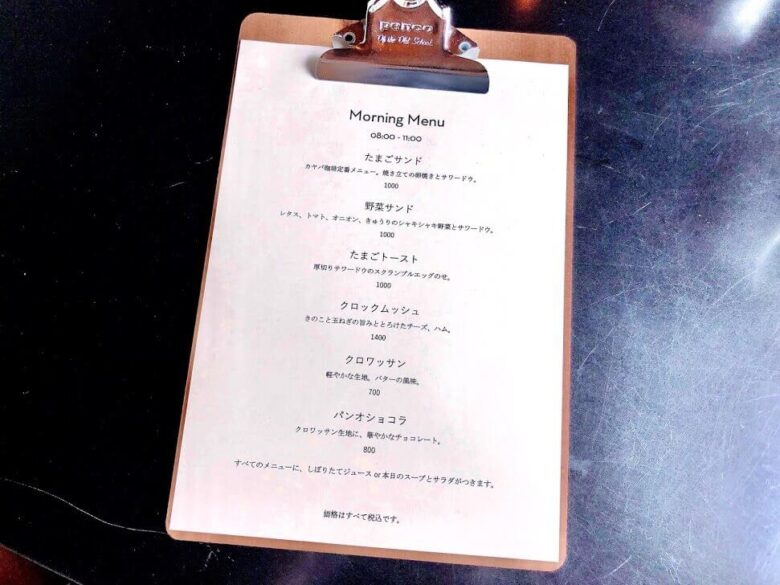 penco
Of the Old School.
Morning Menu
08:00 - 11:00
たまごサンド
カヤバ珈琲定番メニュー。焼き立ての卵焼きとサワードウ。
1000
野菜サンド
レタス、トマト、オニオン、きゅうりのシャキシャキ野菜とサワードウ。
1000
たまごトースト
厚切りサワードウのスクランブルエッグのせ。
1000
クロックムッシュ
きのこと玉ねぎの旨みととろけたチーズ、ハム。
1400
クロワッサン
軽やかな生地。バターの風味。
700
パンオショコラ
クロワッサン生地に、華やかなチョコレート。
800
すべてのメニューに、しぼりたてジュース or 本日のスープとサラダがつきます。
価格はすべて税込です。